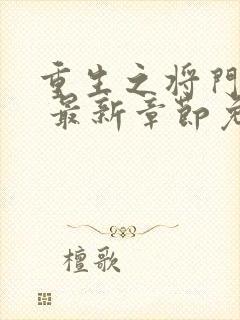 重生之将门
最新章节免
檀歌